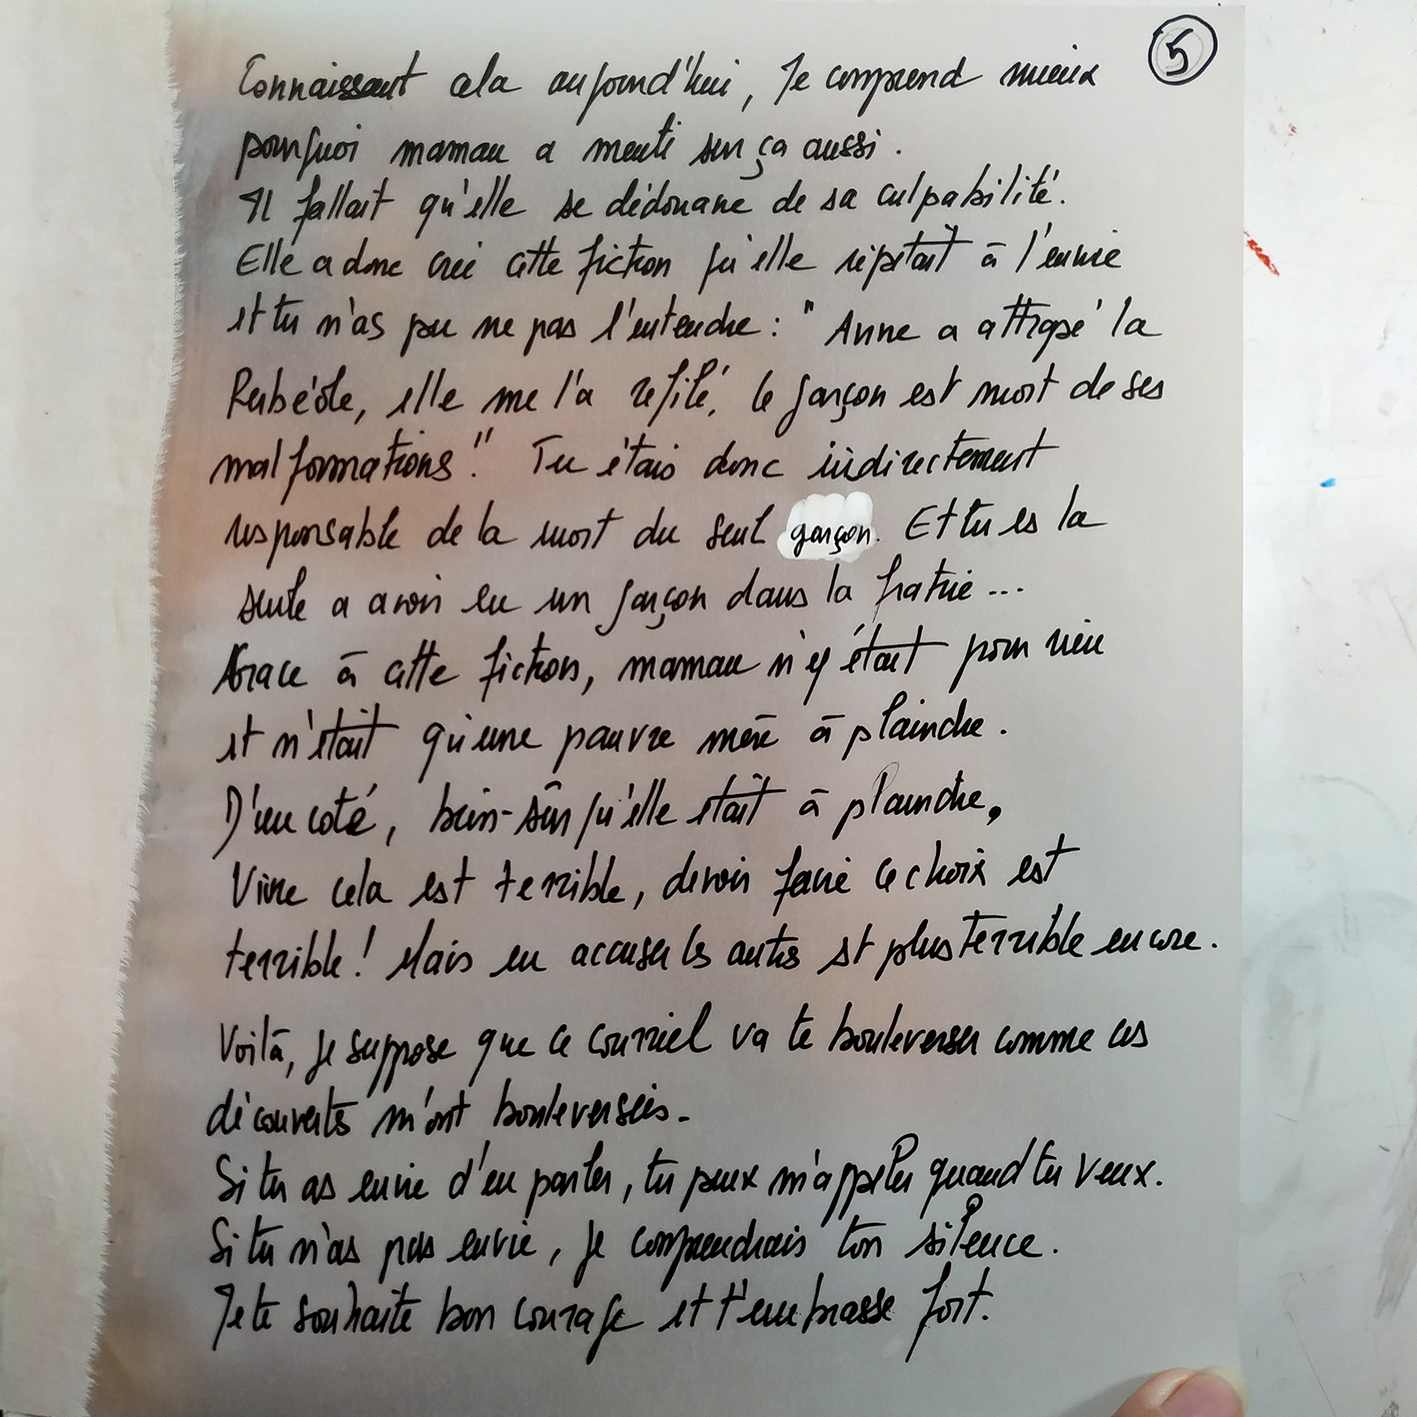 5
Connaissant cela aujourd'hui, je comprend mieux
pourquoi maman a menti sur ça aussi.
Il fallait qu'elle se dédouane de sa culpabilité.
Elle a donc créé cette fiction qu'elle répétait à l'envie
et tu n'as pu ne pas l'entendre : "Anne a attrapé la
Rubéole, elle me l'a refilé, le garçon est mort de ses
malformations". Tu étais donc indirectement
responsable de la mort du seul garçon. Et tu es la
seule a avoir eu un garçon dans la fratrie...
Grace à cette fiction, maman n'y était pour rien
et n'était qu'une pauvre mère à plaindre.
D'un coté, bien-sûr qu'elle était à plaindre,
Vivre cela est terrible, devoir faire ce choix est
terrible ! Mais en accuser les autres est plus terrible encore.
Voilà, je suppose que ce courriel va te bouleverser comme ces
découvertes m'ont bouleversées.
Si tu as envie d'en parler, tu peux m'appeler quand tu veux.
Si tu n'as pas envie, je comprendrais ton silence.
Je te souhaite bon courage et t'embrasse fort.